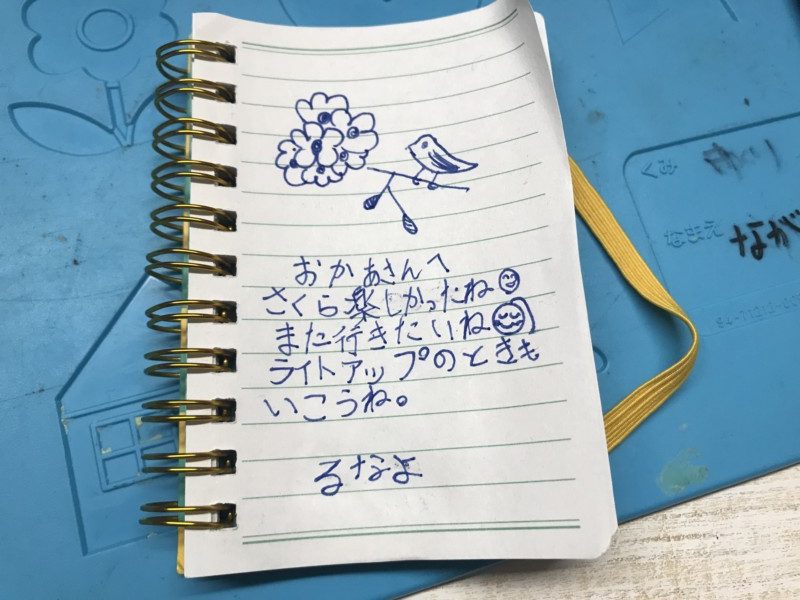 おかあさんへ
さくら楽しかったね
また行きたいね
ライトアップのときも
いこうね。
るなよ
くみ
なまえ
なが